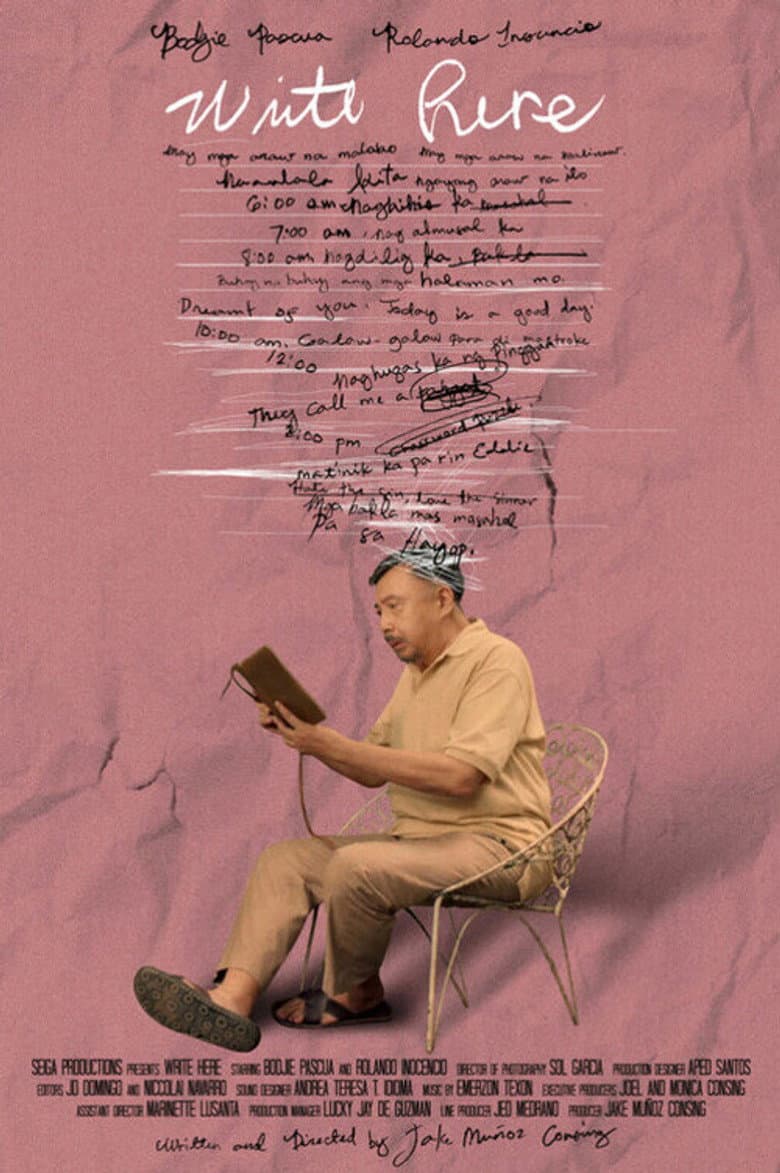 Bodjie Pascua Rolando Inocencio
Write Here
May mga araw na malabo May mga araw na malinaw.
Naaalala kita ngayong araw na ito
6:00 am nagbihis ka
7:00 am, nag almusal ka
8:00 am nagdilig ka,
Buhay na buhay ang mga halaman mo.
Dreamt of you. Today is a good day.
10:00 am. Galaw-galaw para di mastroke
12:00 Naghugas ka ng Pinggan
They call me a
2:00 pm crossword puzzle.
matinik ka pa rin Eddie
Hate the sin, love the sinner
Mga bakla mas masahol
Pa sa Hayop.
SEIGA PRODUCTIONS PRESENTS WRITE HERE STARRING BODJIE PASCUA AND ROLANDO INOCENCIO DIRECTOR OF PHOTOGRAPHY SOL GARCIA PRODUCTION DESIGNER APED SANTOS
EDITORS JD DOMINGO AND NICCOLAI NAVARRO SOUND DESIGNER ANDREA TERESA T. IDIOMA MUSIC BY EMERZON TEXON EXECUTIVE PRODUCERS JOEL AND MONICA CONSING
ASSISTANT DIRECTOR MARINETTE LUSANTA PRODUCTION MANAGER LUCKY JAY DE GUZMAN LINE PRODUCER JED MEDRANO PRODUCER JAKE MUÑOZ CONSING
Written and Directed by Jake Muñoz Consing